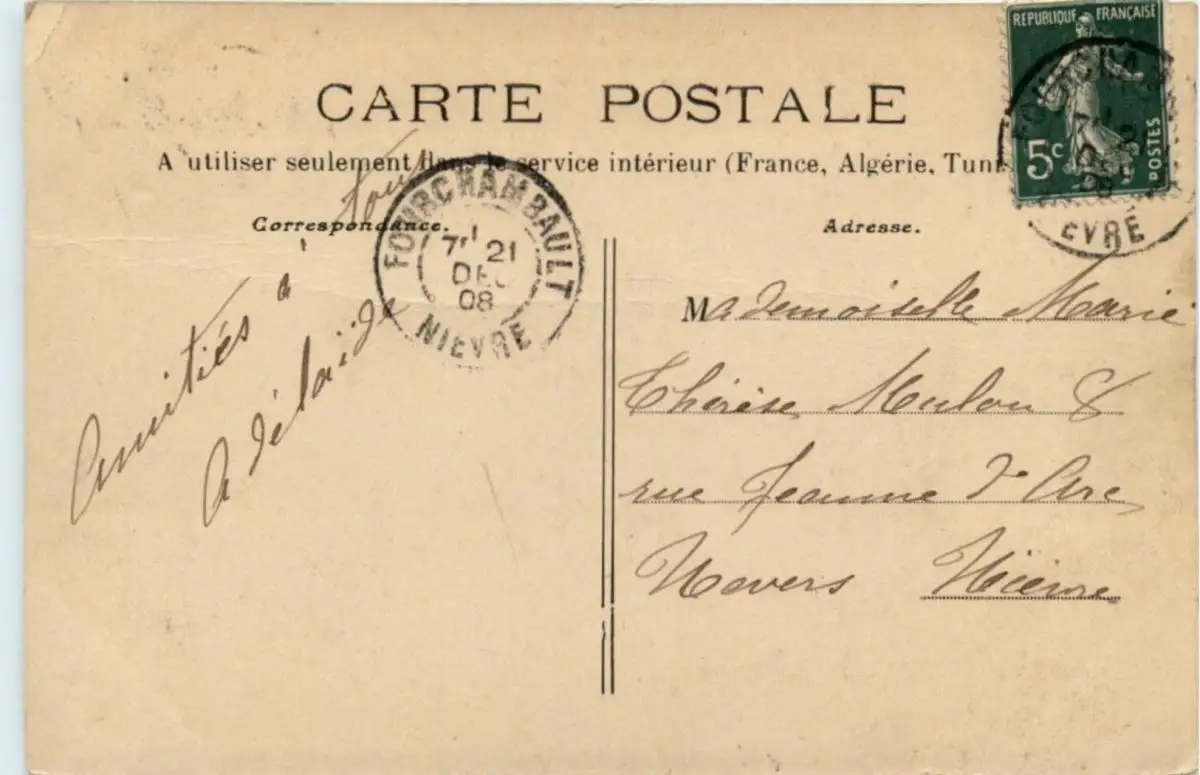 REPUBLIQUE FRANÇAISE
5c
POSTES
CARTE POSTALE
A utiliser seulement dans le service intérieur (France, Algérie, Tuni
Correspondance.
Adresse.
FOURCHAMBAULT
21
DEC
08
NIEVRE
FOURCHA
08
EVRE
Amitiés à
Adélaïde
Mademoiselle Marie
Thérèse 8
rue Jeanne d'Arc
Nevers Nièvre